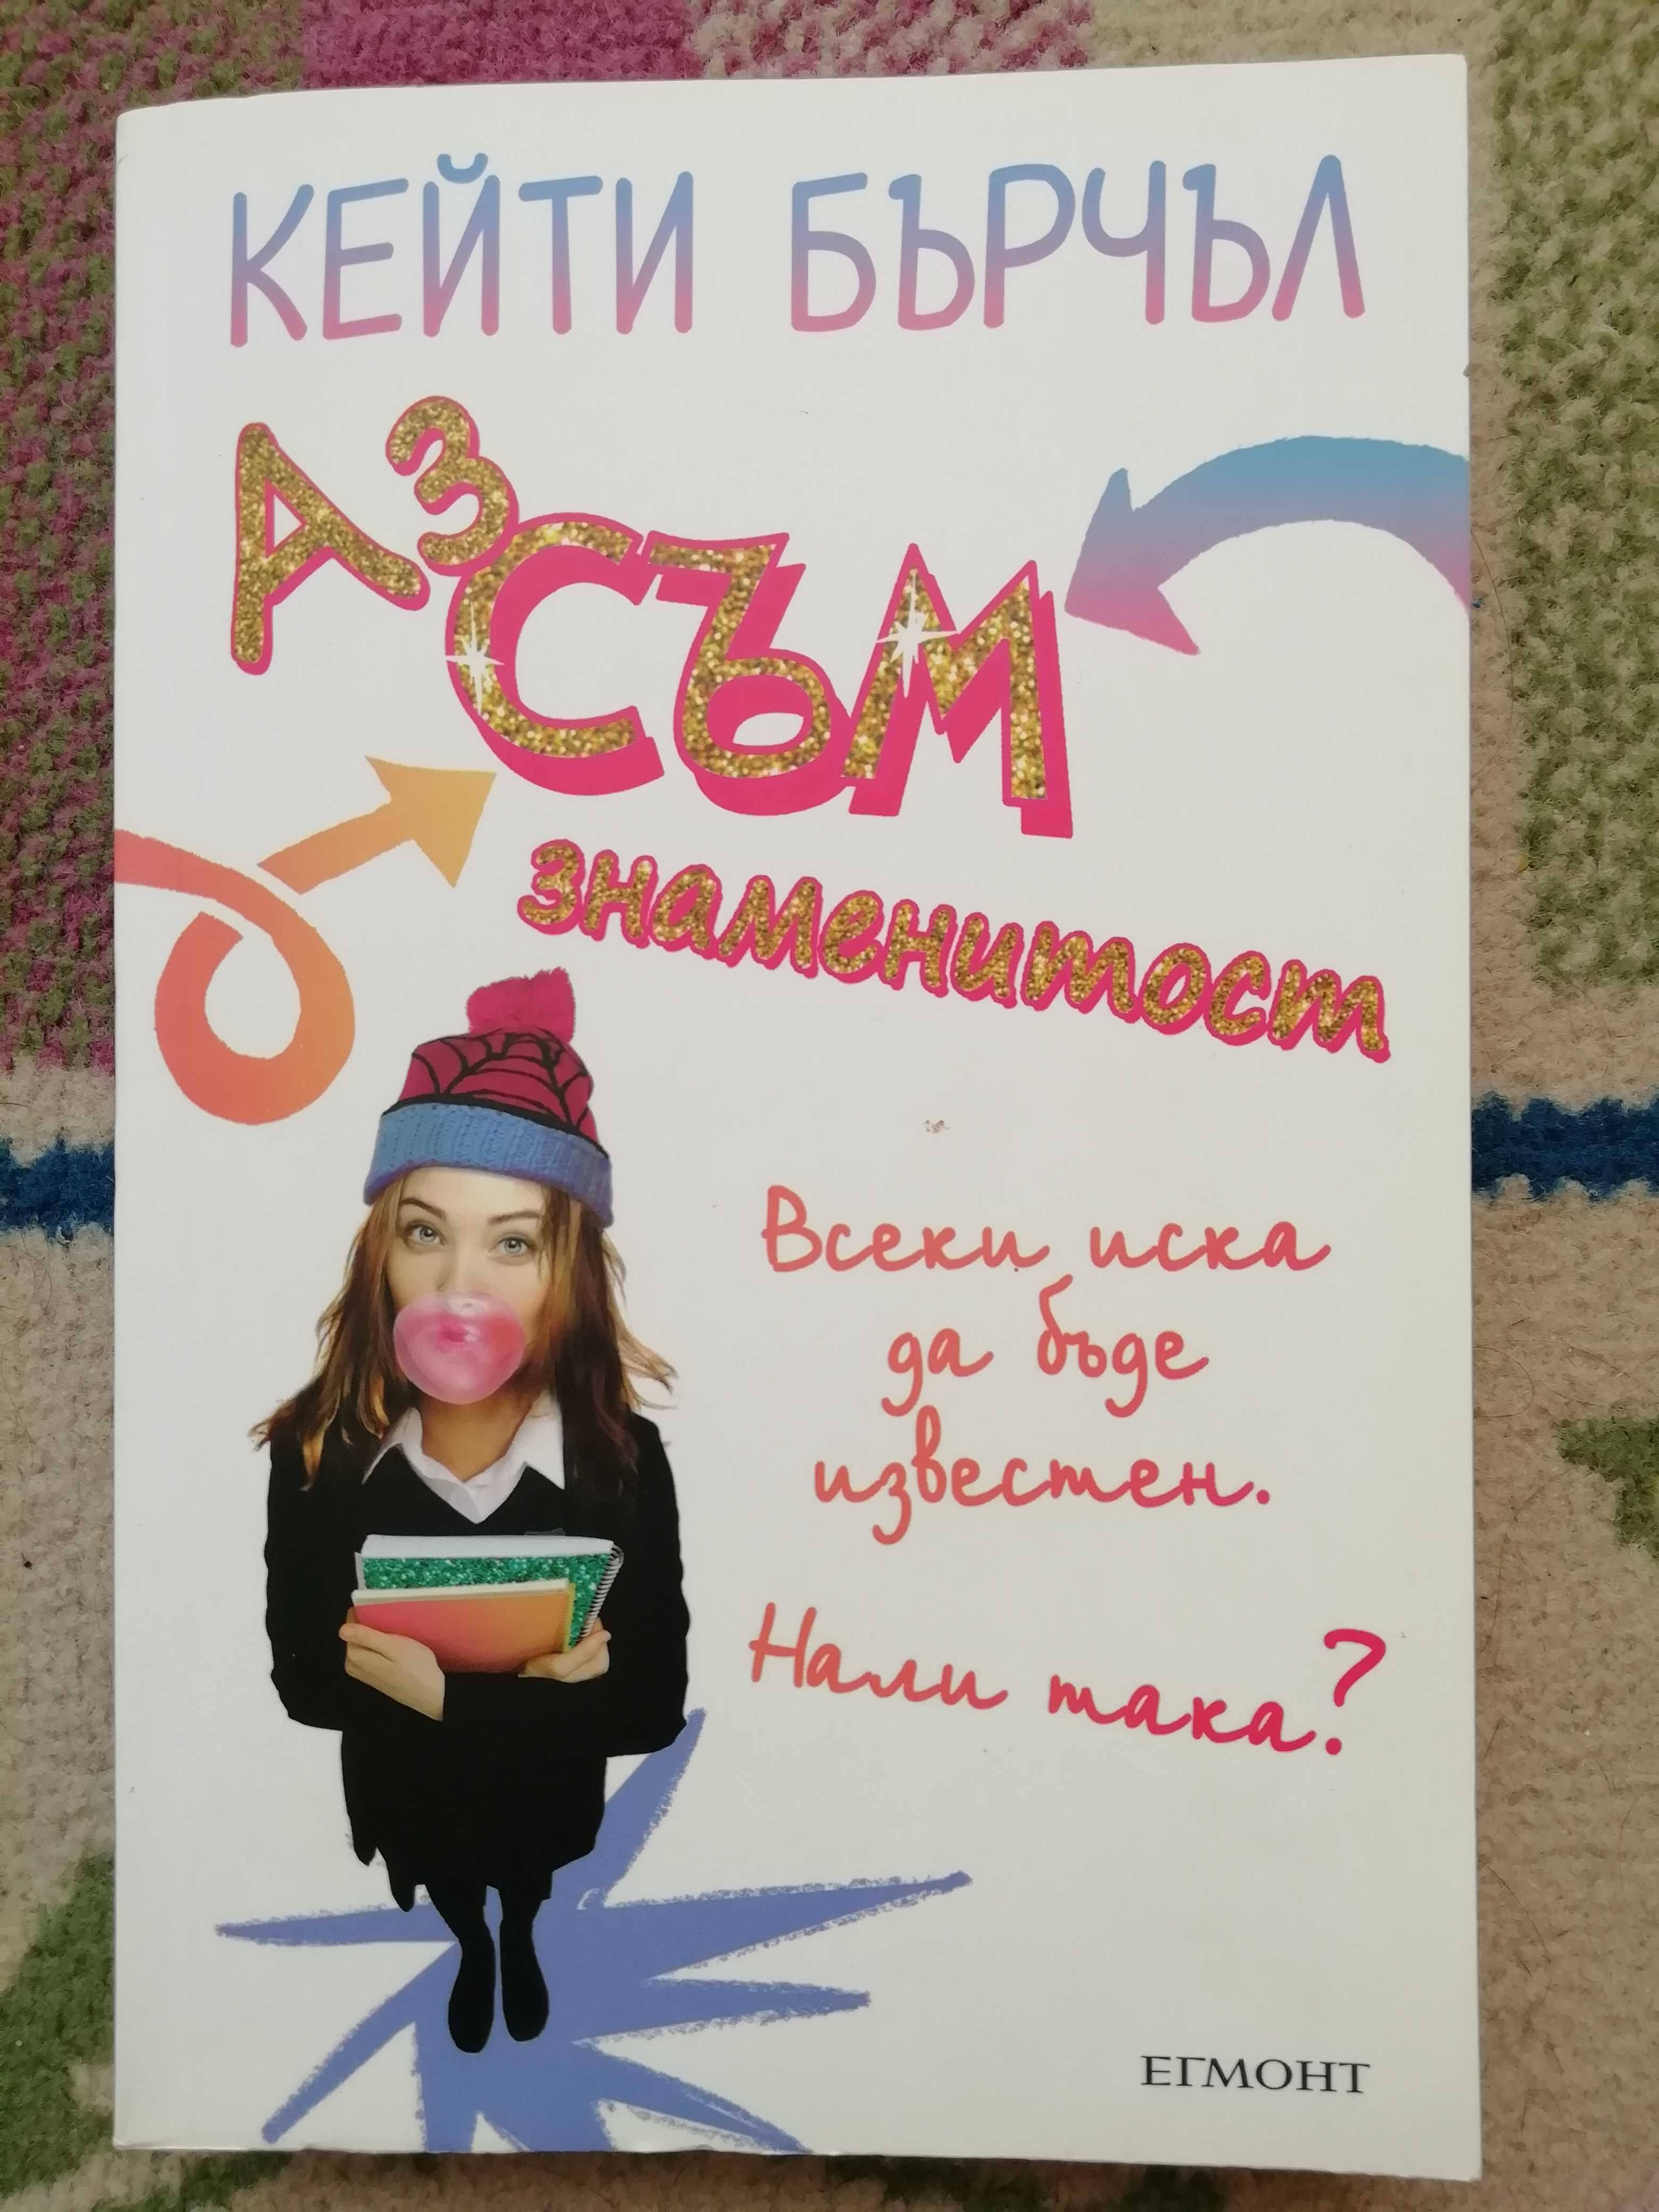 КЕЙТИ БЪРЧЪЛ
Аз СЪМ
знаменитост
Всеки иска
да бъде
известен.
Нали така?
ЕГМОНТ